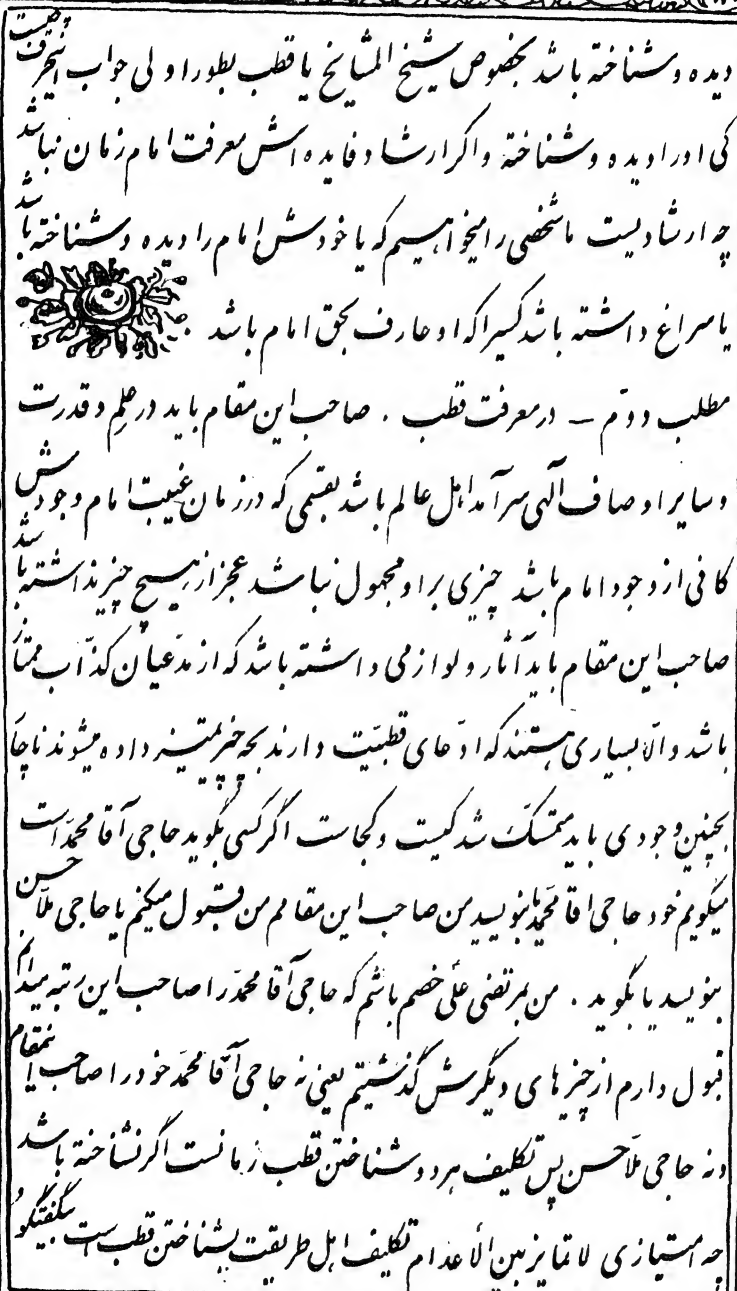 دیده و شناخته باشد بخصوص شیخ المشایخ یا قطب بطور اولی جواب اینحرف چیست
کی او را دیده و شناخته و اگر ارشاد فایده اش معرفت امام زمان نباشد
چه ارشادیست ما شخصی را میخواهیم که یا خودش امام را دیده و شناخته باشد
یا سراغ داشته باشد کسیرا که او عارف بحق امام باشد
مطلب دوّم – در معرفت قطب . صاحب این مقام باید در علم و قدرت
و سایر اوصاف آلهی سرآمد اهل عالم باشد بقسمی که در زمان غیبت امام وجودش
کافی از وجود امام باشد چیزی بر او مجهول نباشد عجز از هیچ چیز نداشته باشد
صاحب این مقام باید آثار و لوازمی داشته باشد که از مدّعیان کذّاب ممتاز
باشد والّا بسیاری هستند که ادّعای قطبیّت دارند بچه چیز تمیز داده میشوند ناچار
بچنین وجودی باید متمسّک شد کیست و کجاست اگر کسی بگوید حاجی آقا محمّد است
میگویم خود حاجی آقا محمّد بنویسد من صاحب این مقامم من قبول میکنم یا حاجی ملّا حسن
بنویسد یا بگوید . من بمرتضی علی خصم باشم که حاجی آقا محمّد را صاحب این رتبه میدانم
قبول دارم از چیزهای دیگرش گذشتیم یعنی نه حاجی آقا محمّد خود را صاحب اینمقام
و نه حاجی ملّا حسن پس تکلیف هر دو شناختن قطب زمانست اگر نشناخته باشد
چه امتیازی لا تمایز بین الأعدام تکلیف اهل طریقت بشناختن قطب است بگفتگو